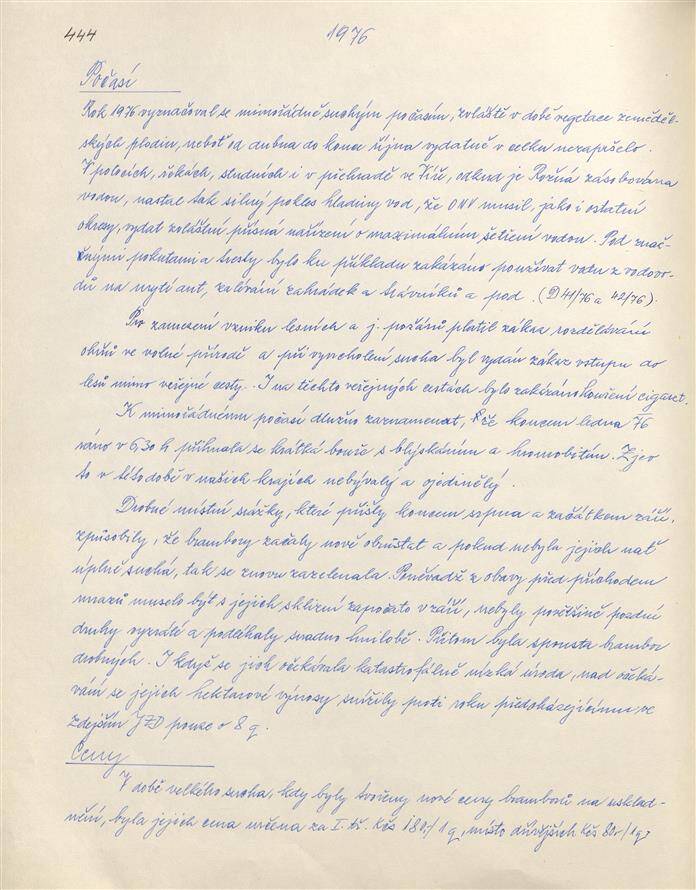 444
1976
Počasí
Rok 1976 vyznačoval se mimořádně suchým počasím, zvláště v době vegetace zeměděl-
ských plodin, neboť od dubna do konce října vydatně v celku nezapršelo.
V potocích, řekách, studních i v přehradě ve Víře, odkud je Rožná zásobována
vodou, nastal tak silný pokles hladiny vod, že ONV musil, jako i ostatní
okresy, vydat zvláštní přísná nařízení o maximálním šetření vodou. Pod znač-
nými pokutami a tresty bylo ku příkladu zakázáno používat vodu z vodovo-
dů na mytí aut, zalévání zahrádek a trávníků a pod. (D 41/76 a 42/76).
Pro zamezení vzniku lesních a j. požárů platil zákaz rozdělávání
ohňů ve volné přírodě a při vyvrcholení sucha byl vydán zákaz vstupu do
lesů mimo veřejné cesty. I na těchto veřejných cestách bylo zakázáno kouření cigaret.
K mimořádnému počasí dlužno zaznamenat, že koncem ledna 76
ráno v 6,30 h přihnala se krátká bouře s blýskáním a hromobitím. Zjev
to v této době v našich krajích nebývalý a ojedinělý.
Drobné místní srážky, které přišly koncem srpna a začátkem září,
způsobily, že brambory začaly nově obrůstat a pokud nebyla jejich nať
úplně suchá, tak se znovu zazelenala. Poněvadž z obavy před příchodem
mrazů muselo být s jejich sklizní započato v září, nebyly povětšině pozdní
druhy vyzrálé a podléhaly snadno hnilobě. Přitom byla spousta brambor
drobných. I když se jich očekávala katastrofálně nízká úroda, nad očeká-
vání se jejich hektarové výnosy snížily proti roku předcházejícímu, ve
zdejším JZD pouze o 8 q.
Ceny
V době velkého sucha, kdy byly tvořeny nové ceny brambor na usklad-
nění, byla jejich cena určena za I. tř. Kčs 180,-/1 q, místo dřívějších Kčs 80,-/1 q.